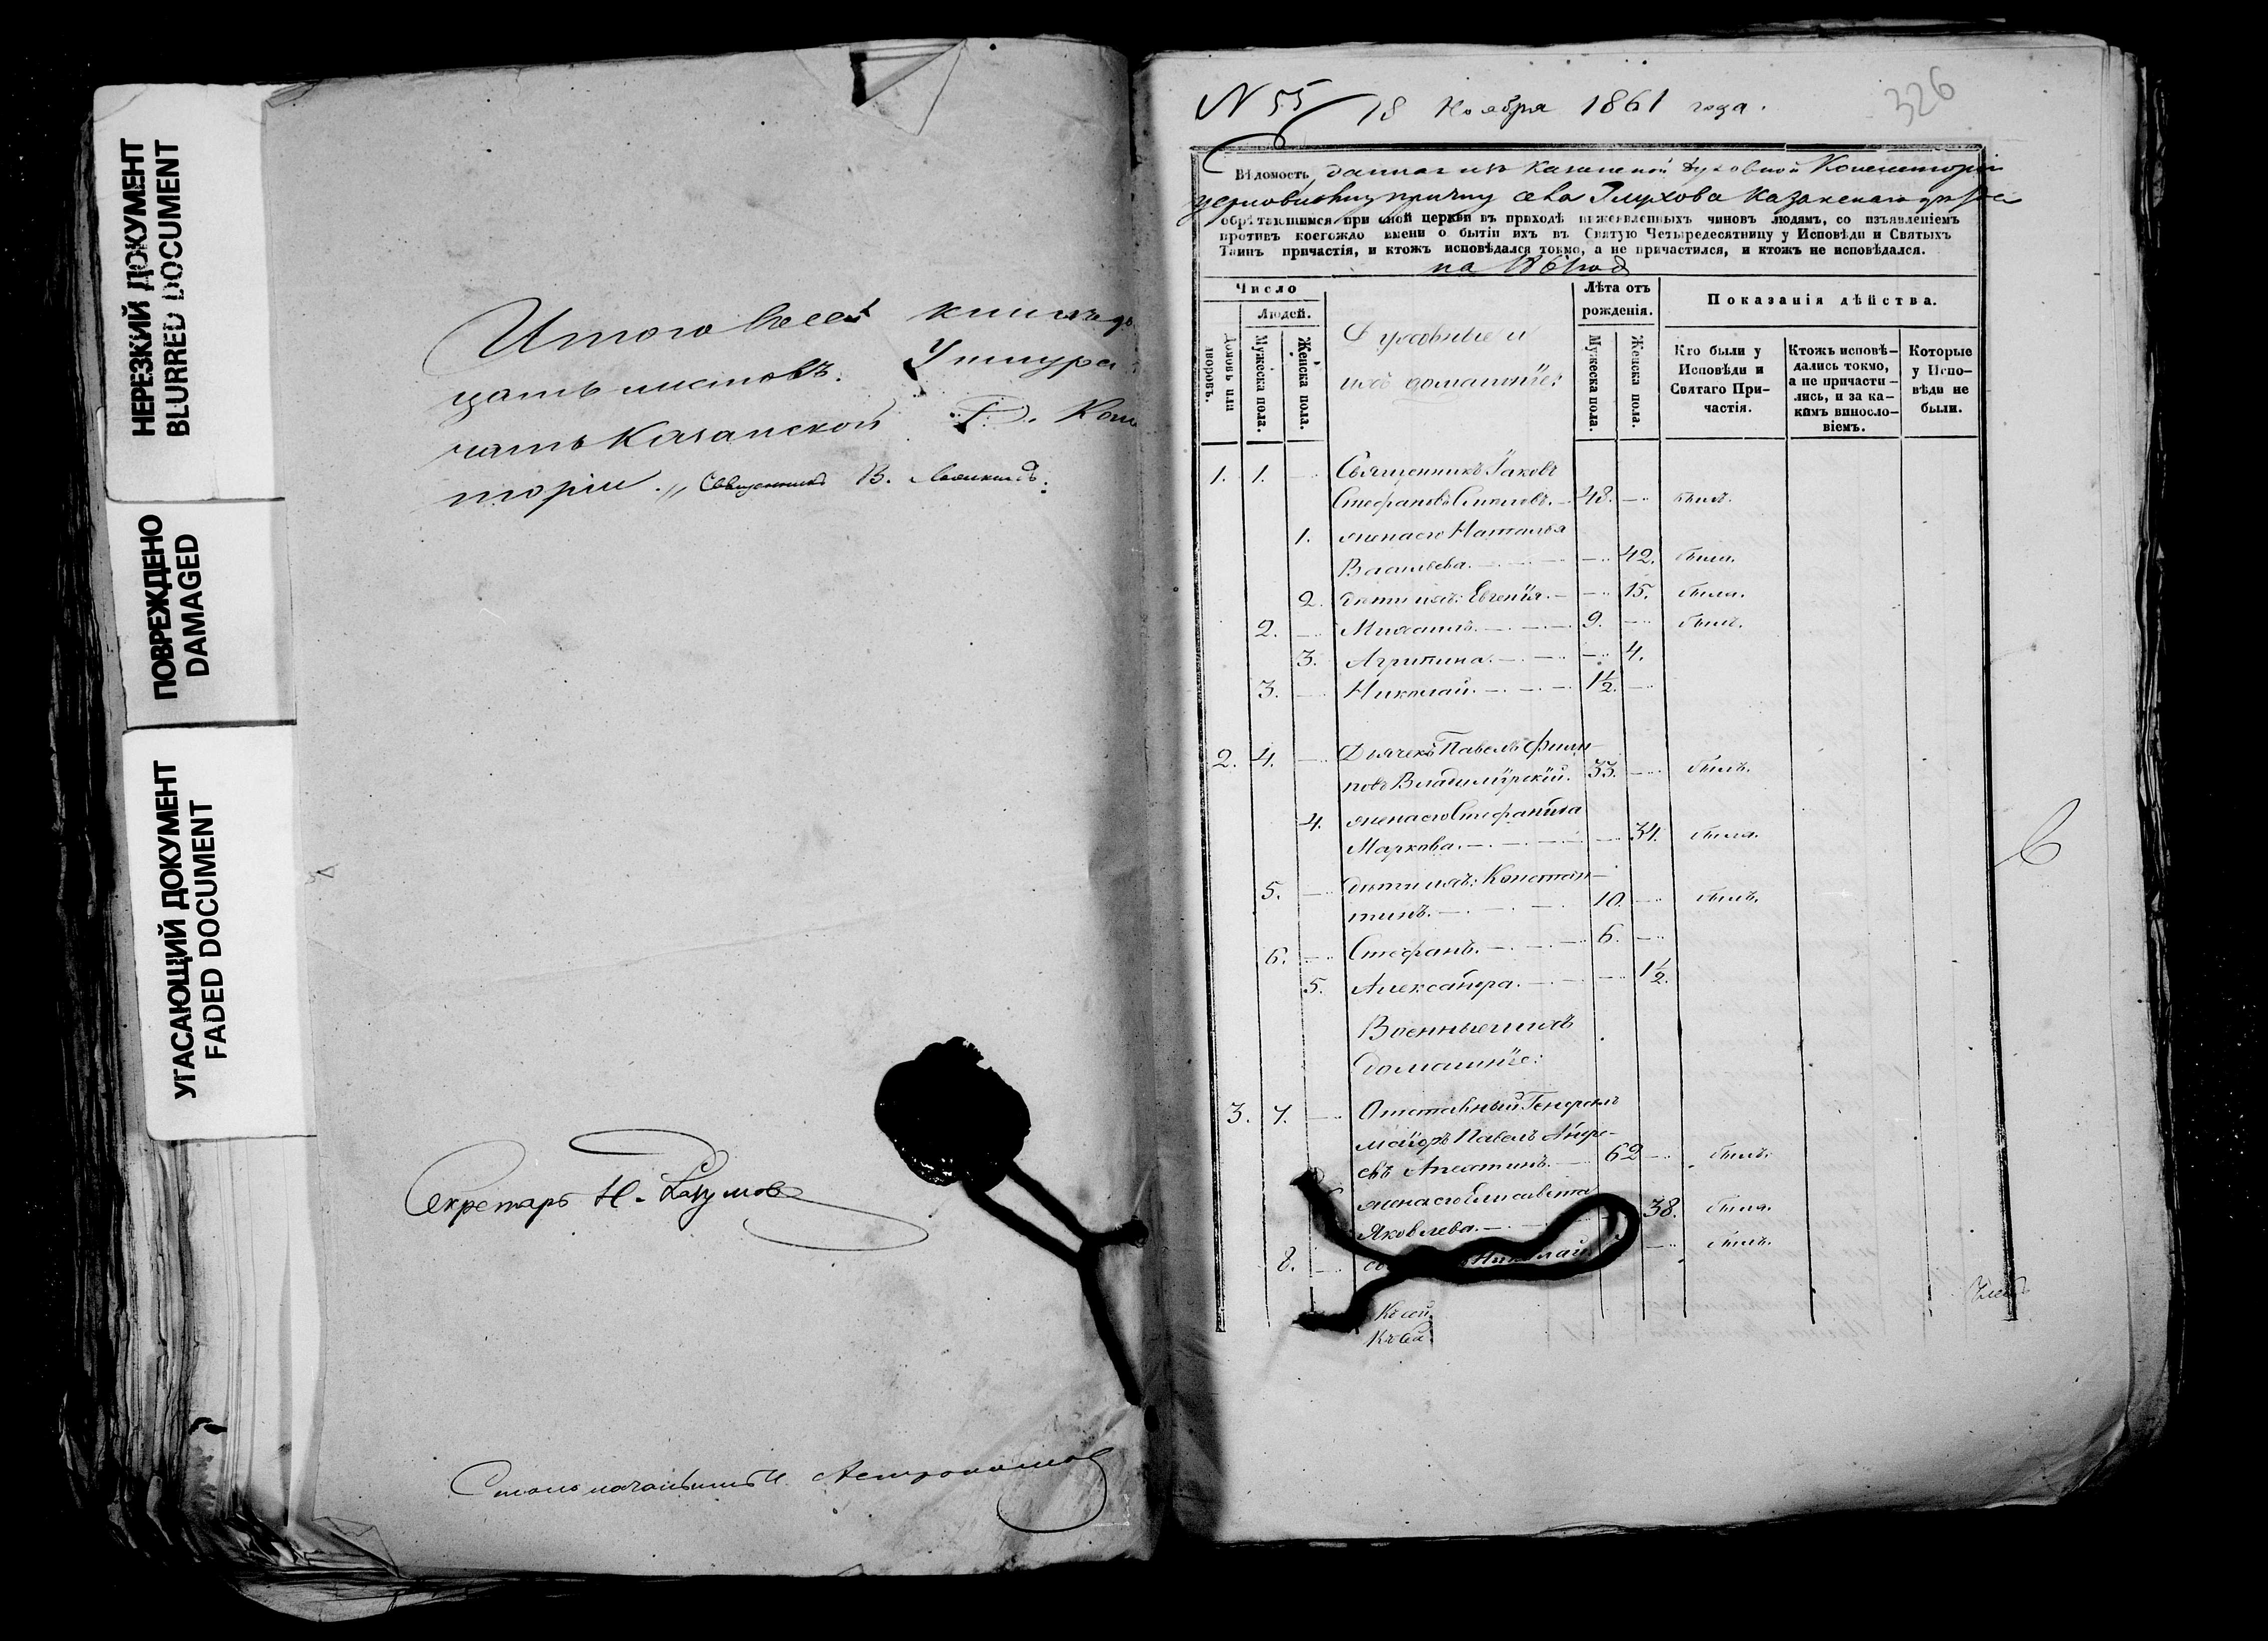 НЕРЕЗКИЙ ДОКУМЕНТ
BLURRED DOCUMENT
ПОВРЕЖДЕНО
DAMAGED
УГАСАЮЩИЙ ДОКУМЕНТ
FADED DOCUMENT
Итого
цать листовъ. У шнура
чать Казанской Д. Конс
торіи. Священникъ В.
Секретарь Н. Разумовъ
Столоначальникъ
N 55 18 Ноября 1861 года.
326
Вѣдомость, данная изъ Казанской Духовной Консисторіи
причту села Глухова Казанскаго уѣзда
обрѣтающимся при оной церкви въ приходѣ нижеявленныхъ чиновъ людямъ, со изъявленіемъ
противъ коегождо имени о бытіи ихъ въ Святую Четыредесятницу у Исповѣди и Святыхъ
Таинъ причастія, и ктожъ исповѣдался токмо, а не причастился, и ктожъ не исповѣдался.
на 1861 год
Число
Домовъ или дворовъ.
Людей.
Мужеска пола.
Женска пола.
Духовные и
ихъ домашніе:
Лѣта отъ рожденія.
Мужеска пола.
Женска пола.
Показанія дѣйства.
Кто были у Исповѣди и Святаго Причастія.
Ктожъ исповѣдались токмо, а не причастились, и за какимъ винословіемъ.
Которые у Исповѣди не были.
1. 1. — Священникъ Іаковъ
Стефановъ 48. — былъ.
1. жена его Наталья
Васильева. — 42. была.
2. дѣти ихъ: Евгенія. — 15. была.
2. — Михаилъ. 9. — былъ.
3. Агрипина. — 4.
3. — Николай. 1½. —
2. 4. — Дьячекъ Павелъ Филип-
повъ Владимірскій. 33. — былъ.
4. жена его Стефанида
Маркова. — 34. была.
5. — дѣти ихъ: Констан-
тинъ. 10. — былъ.
6. — Стефанъ. 6. —
5. Александра. — 1½.
Военные и ихъ
домашніе:
3. 7. — Отставный Генералъ
маіоръ Павелъ Андре-
евъ 62 — былъ.
жена его Елисавета
Яковлева. — 38. была.
8. — Николай — былъ.